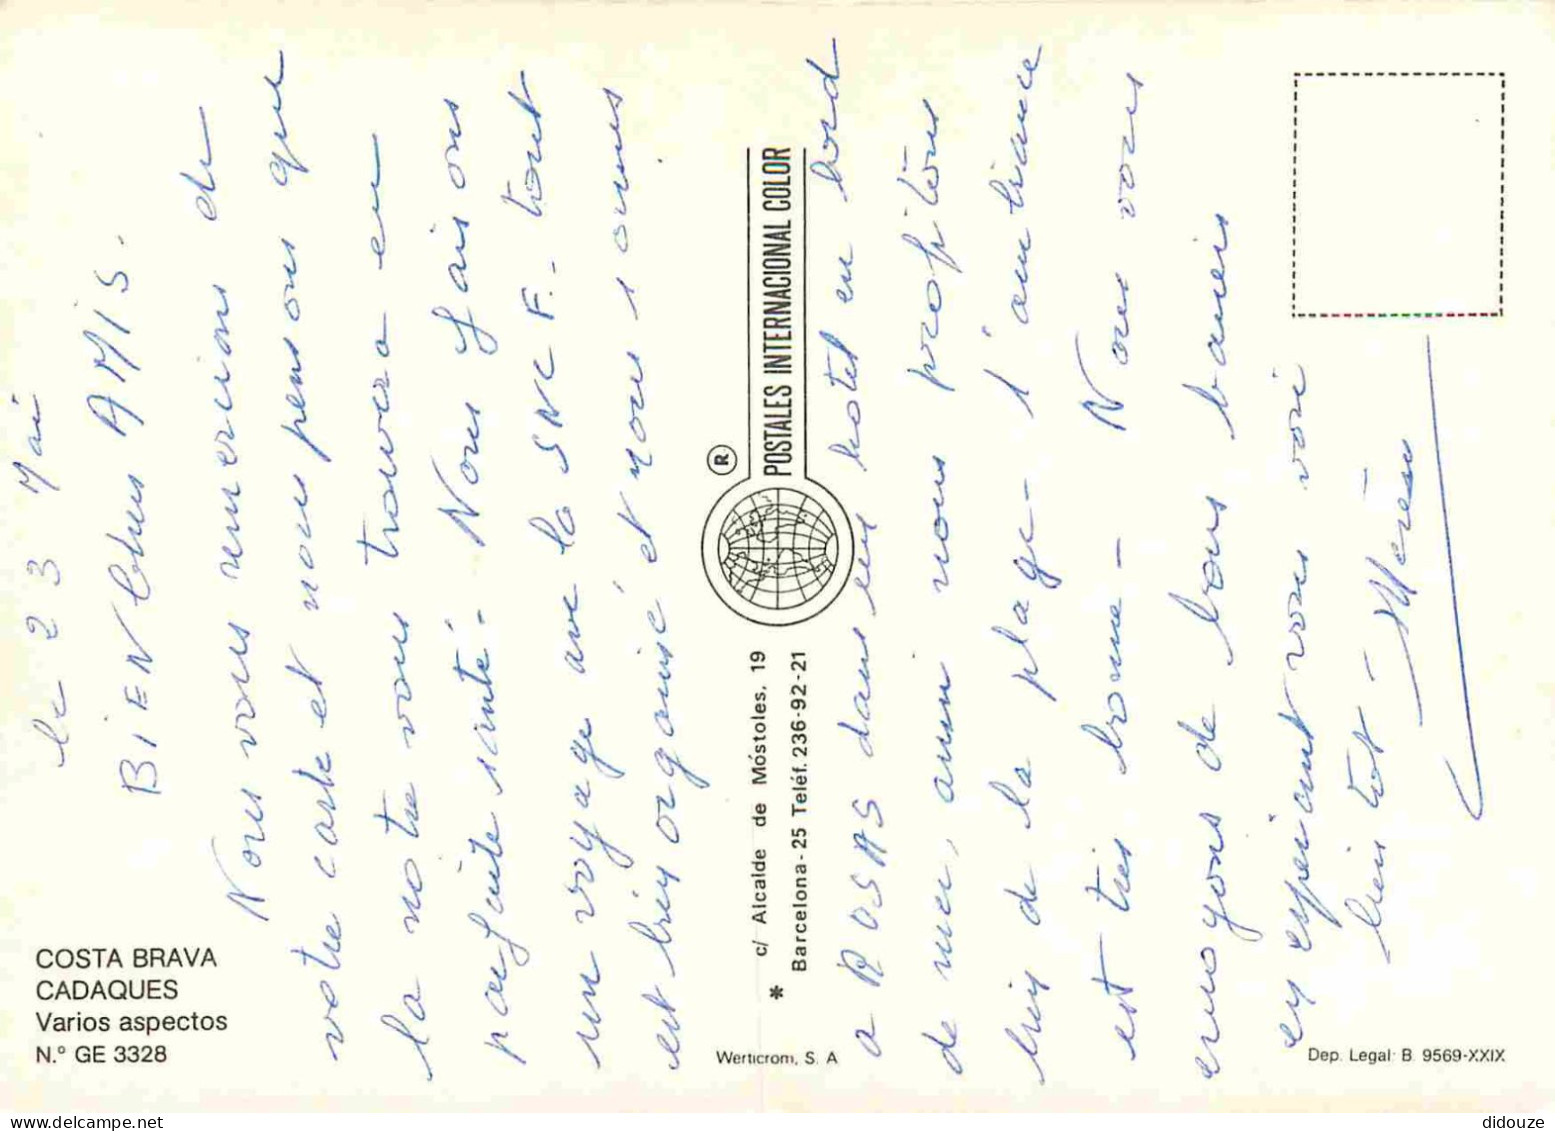 le 23 Mai
BIEN Chers AMIS.
Nous vous remercions de
votre carte et nous pensons que
la notre vous trouvera en
parfaite santé. Nous faisons
un voyage avec la SNCF. tout
est bien organisé et nous sommes
a ROSAS dans un hotel en bord
de mer, aussi nous profitons
bien de la plage - l'ambiance
est très bonne - Nous vous
envoyons de bons baisers
en espérant vous voir
bien tôt -
COSTA BRAVA
CADAQUES
Varios aspectos
N.° GE 3328
* c/ Alcalde de Móstoles, 19
Barcelona - 25 Teléf. 236-92-21
POSTALES INTERNACIONAL COLOR
®
Werticrom, S. A
Dep. Legal: B. 9569-XXIX
didouze